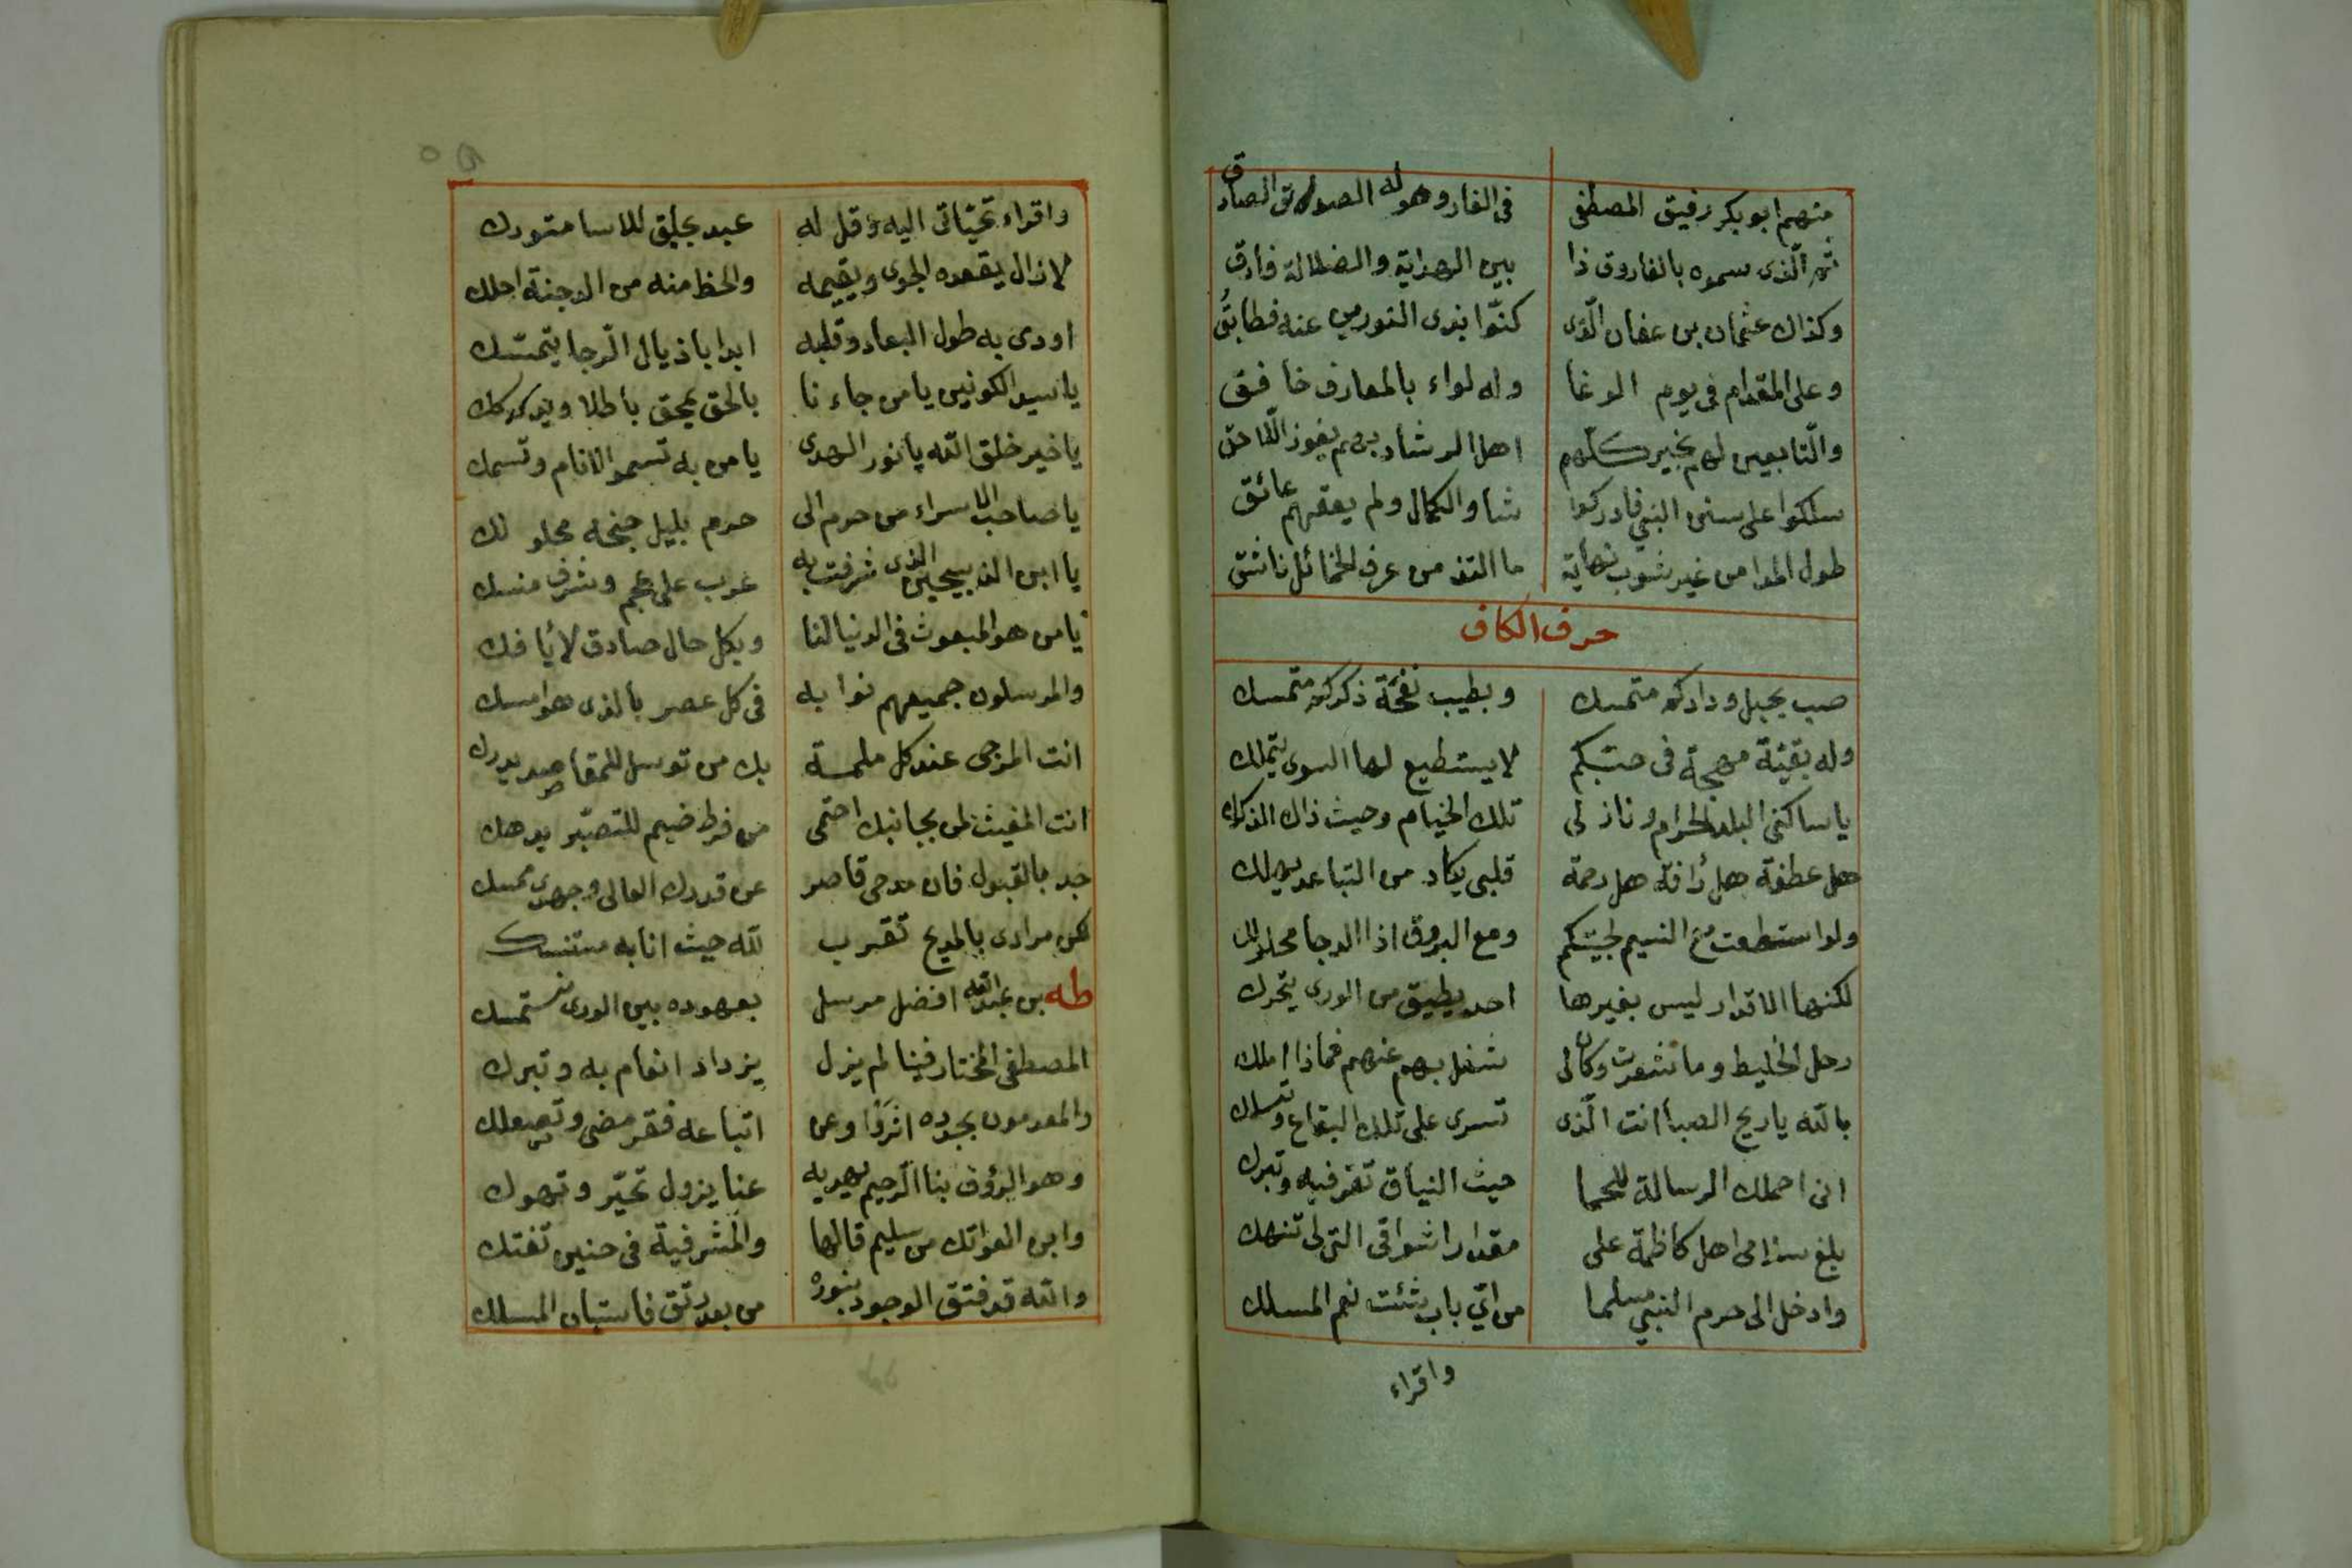 منهم ابو بكر رفيق المصطفى في الغار وهو له الصدوق الصادق
ثم الّذى سموه بالفاروق ذا بين الهداية والضلالة فارق
وكذاك عثمان بن عفان الّذى كنّوا بذى النورين عنه فطابقُ
وعلى المقدام فى يوم الوغا وله لواء بالمعارف خافق
والتّابعين لهم بخير كلّهم اهل الرشاد بهم يفوز الّلاحق
سلكوا على سنن النبي فادركوا شاو الكمال ولم يعقهم عائق
طول المدا من غير شوب نهاية ما التذ من عرف الخمائل ناشق
حرف الكاف
صب بحبل ودادكم متمسك وبطيب نفحة ذكركم متمسك
وله بقيّة مهجة فى حبّكم لا يستطيع لها السوى يتملك
يا ساكنى البلد الحرام ونازلى تلك الخيام وحيث ذاك المذكرك
هل عطفة هل رأفة هل رحمة قلبى يكاد من التباعد يهلك
ولو استطعت مع النسيم لجيئتكم ومع البروق اذا الدجا محلولك
لكنها الاقدار ليس بغيرها احد يطيق من الورى يتحرك
رحل الخليط وما شعرت وكان لى شغل بهم عنهم فماذا املك
بالله يا ريح الصبا انت الّذى تسرى على تلك البقاع وتسلك
انى احملك الرسالة للحما حيث النياق تقر فيه وتبرك
بلغ سلامى اهل كاظمة على مقدار اشواقى التى لى تنهك
وادخل الى حرم النبي مسلما من اىّ باب شئت نعم المسلك
واقراء
واقراء تحيّاتى اليه وقل له عبد بجلق للاسا متورك
لا زال يقعده الجوى ويقيمه والحظ منه من الدجنة احلك
اودى به طول البعاد وقلبه ابدا باذيال الرّجا يتمسّك
يا سيد الكونين يا من جاءنا بالحق يمحق باطلا ويدكدك
يا خير خلق الله يا نور الهدى يا من به تسمو الانام وتسمك
يا صاحب الاسراء من حرم الى حرم بليل جنحه محلولك
يا ابن الذبيحين الذى شرفت به عرب على عجم وشرف منسك
يا من هو المبعوث فى الدنيا لنا وبكل حال صادق لا يافك
والمرسلون جميعهم نوابه فى كل عصر بالذى هو امسك
انت المرجى عند كل ملمة بك من توسل للمقاصد يدرك
انت المغيث لمن بجانبك احتمى من فرط ضيم للتصبّر يدهك
جد بالقبول فان مدحى قاصر عن قدرك العالى وجهدى ممسك
لكن مرادى بالمديح تقرب لله حيث انا به متنسك
طه بن عبد الله افضل مرسل بعهوده بين الورى نستمسك
المصطفى المختار فينا لم يزل يزداد انعام به وتبرك
والمعدمون بجوده اثروا وعن اتباعه فقر مضى وتصعلك
وهو الرؤف بنا الرّحيم بهديه عنا يزول تحيّر وتهوك
وابن العواتك من سليم قالها والمشرفية فى حنين تفتك
والله قد فتق الوجود بنوره من بعد رتق فاستبان المسلك